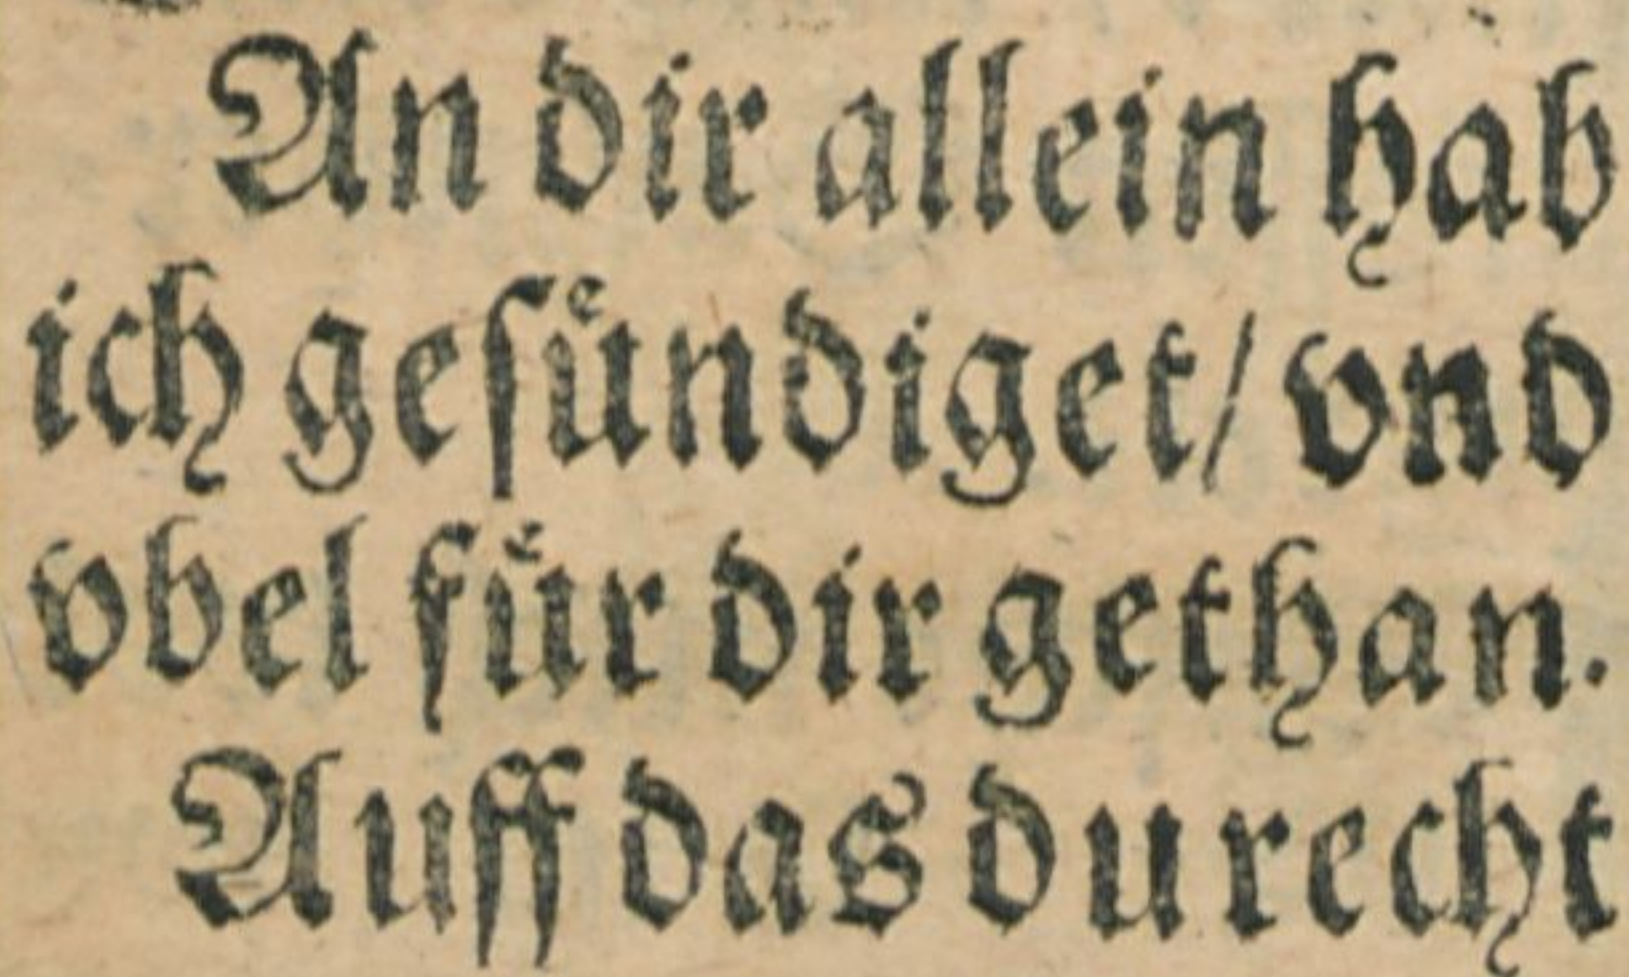 An dir allein hab
ich geſuͤndiget/ vnd
vbel fuͤr dir gethan.
Auff das du recht